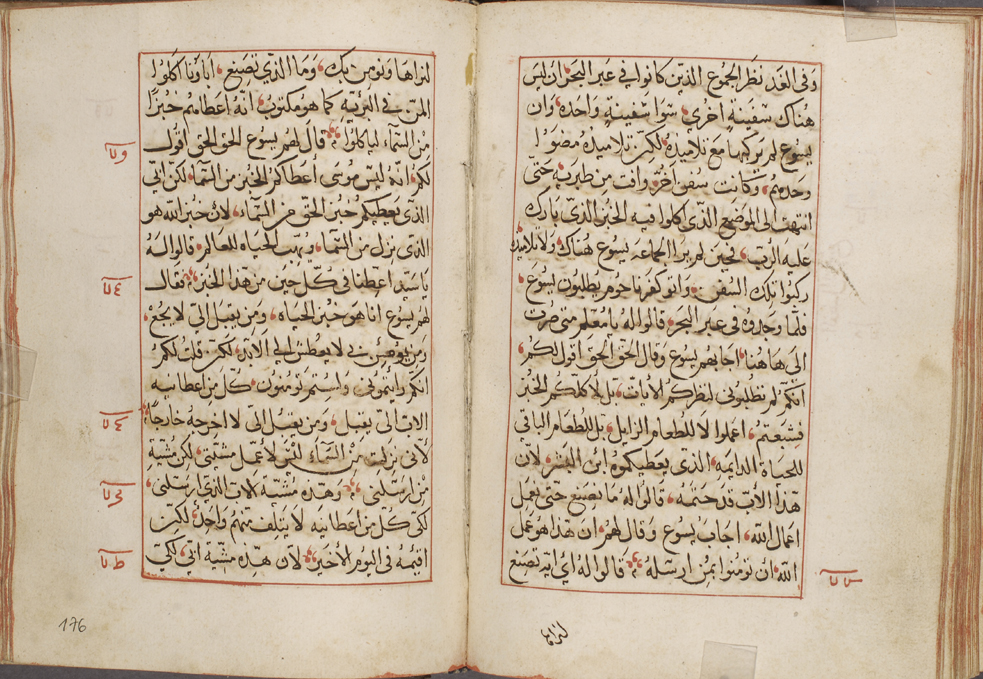 وفى الغد نظر الجموع الذين كانوا في عبر البحر ان ليس
هناك سفينة اخرى سوا سفينة واحده وان
يسوع لم يركبها مع تلاميذه لكن تلاميذه مضوا
وحدهم وكانت سفن اخر وافت من طبريه حتى
انتهت الى الموضع الذى اكلوا فيه الخبز الذى بارك
عليه الرب فحين لم يرا الجماعه يسوع هناك ولا تلاميذه
ركبوا تلك السفن واتوا كفرناحوم يطلبون يسوع
فلما وجدوه فى عبر البحر قالوا له يا معلم متى صرت
الى هاهنا اجابهم يسوع وقال الحق الحق اقول لكم
انكم لم تطلبونى لنظركم الايات بل لاكلكم الخبز
فشبعتم اعملوا لا للطعام الزايل بل للطعام الباقى
للحياة الدايمه الذى يعطيكموه ابن البشر لان
هذا الاب قد ختمه قالوا له ما نصنع حتى نعمل
اعمال الله اجاب يسوع وقال لهم ان هذا هو عمل
الله ان تومنوا بمن ارسله قالوا له اى ايه تصنع
لنراها
لنراها ونومن بك وما الذى تصنع اباونا اكلوا
المن في البريه كما هو مكتوب انه اعطاهم خبزا
من السماء لياكلوا قال لهم يسوع الحق الحق اقول
لكم انه ليس موسى اعطاكم الخبز من السماء لكن ابى
الذى يعطيكم خبز الحق من السماء لان خبز الله هو
الذى نزل من السماء ويهب الحياه للعالم قالوا له
يا سيد اعطنا فى كل حين من هذا الخبز فقال
لهم يسوع انا هو خبز الحياه ومن يقبل الى لا يجع
ومن يومن بى لا يعطش الى الابد لكن قلت لكم
انكم رايتمونى ولستم تومنون كل من اعطانيه
الاب الى يقبل ومن يقبل الى لا اخرجه خارجا
لانى نزلت من السماء ليس لاعمل مشيتى لكن مشية
من ارسلنى وهذه مشية الاب الذى ارسلنى
لكى كل من اعطانيه لا يتلف منهم واحد لكن
اقيمه فى اليوم الاخير لان هذه مشية ابى لكى
176